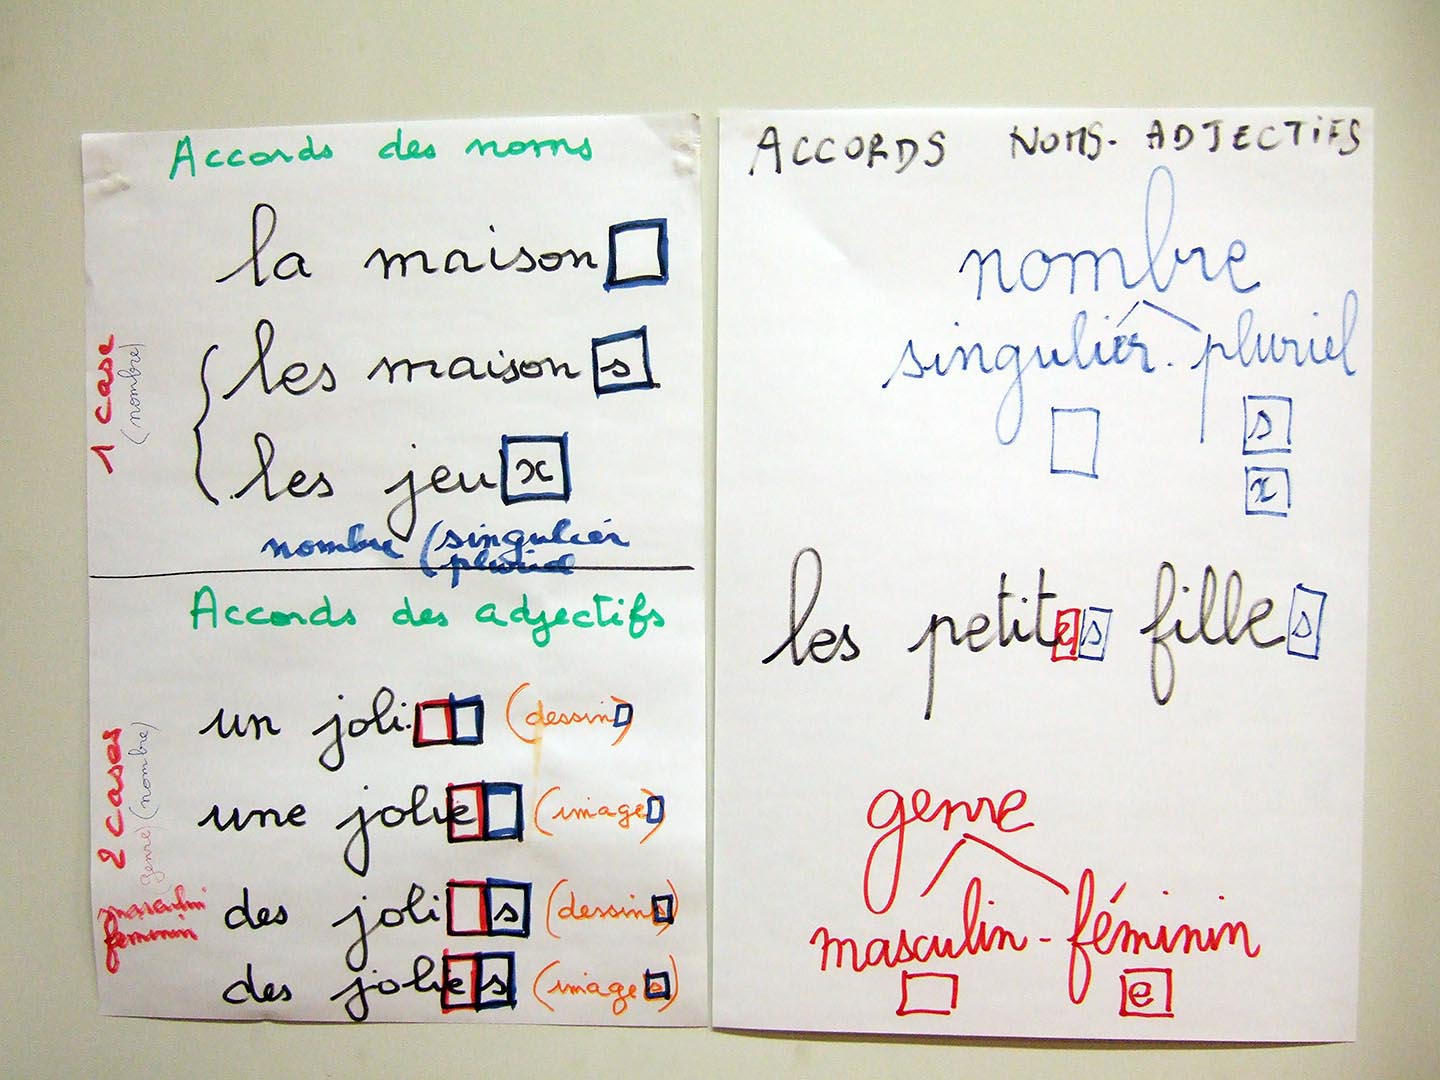 Accords des noms
la maison
les maisons
les jeux
1 case
(nombre)
nombre (singulier
pluriel
Accords des adjectifs
un joli (dessin)
une jolie (image)
des jolis (dessins)
des jolies (images)
2 cases
(genre) (nombre)
masculin
féminin
ACCORDS NOMS-ADJECTIFS
nombre
singulier - pluriel
s
x
les petites filles
genre
masculin - féminin
e